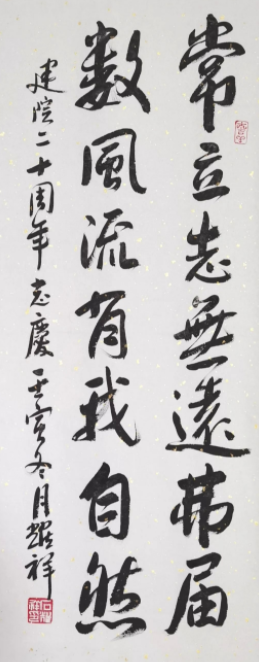 常立志無遠弗届
数風流有我自然
建院二十周年志慶壬寅冬月耀祥